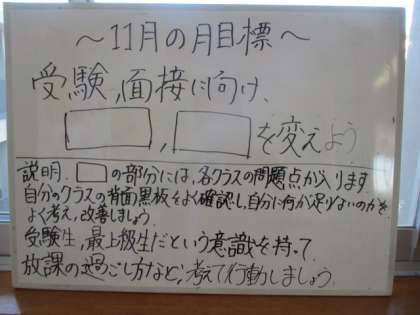 ～11月の月目標～
受験、面接に向け、
□，□を変えよう
説明．□の部分には、各クラスの問題点が入ります
自分のクラスの背面黒板をよく確認し、自分に何が足りないのかを
よく考え、改善しましょう。
受験生、最上級生だという意識を持って
放課の過ごし方など、考えて行動しましょう。